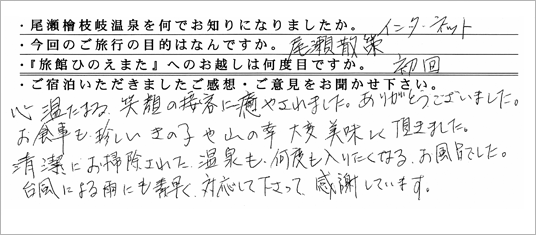 ・尾瀬檜枝岐温泉を何でお知りになりましたか。 インターネット
・今回のご旅行の目的はなんですか。 尾瀬散策
・『旅館ひのえまた』へのお越しは何度目ですか。 初回
・ご宿泊いただきましたご感想・ご意見をお聞かせ下さい。
心温たまる、笑顔の接客に癒やされました。ありがとうございました。
お食事も珍しいきの子や山の幸大変美味しく頂きました。
清潔にお掃除された、温泉も、何度も入りたくなる、お風呂でした。
台風による雨にも素早く、対応して下さって、感謝しています。